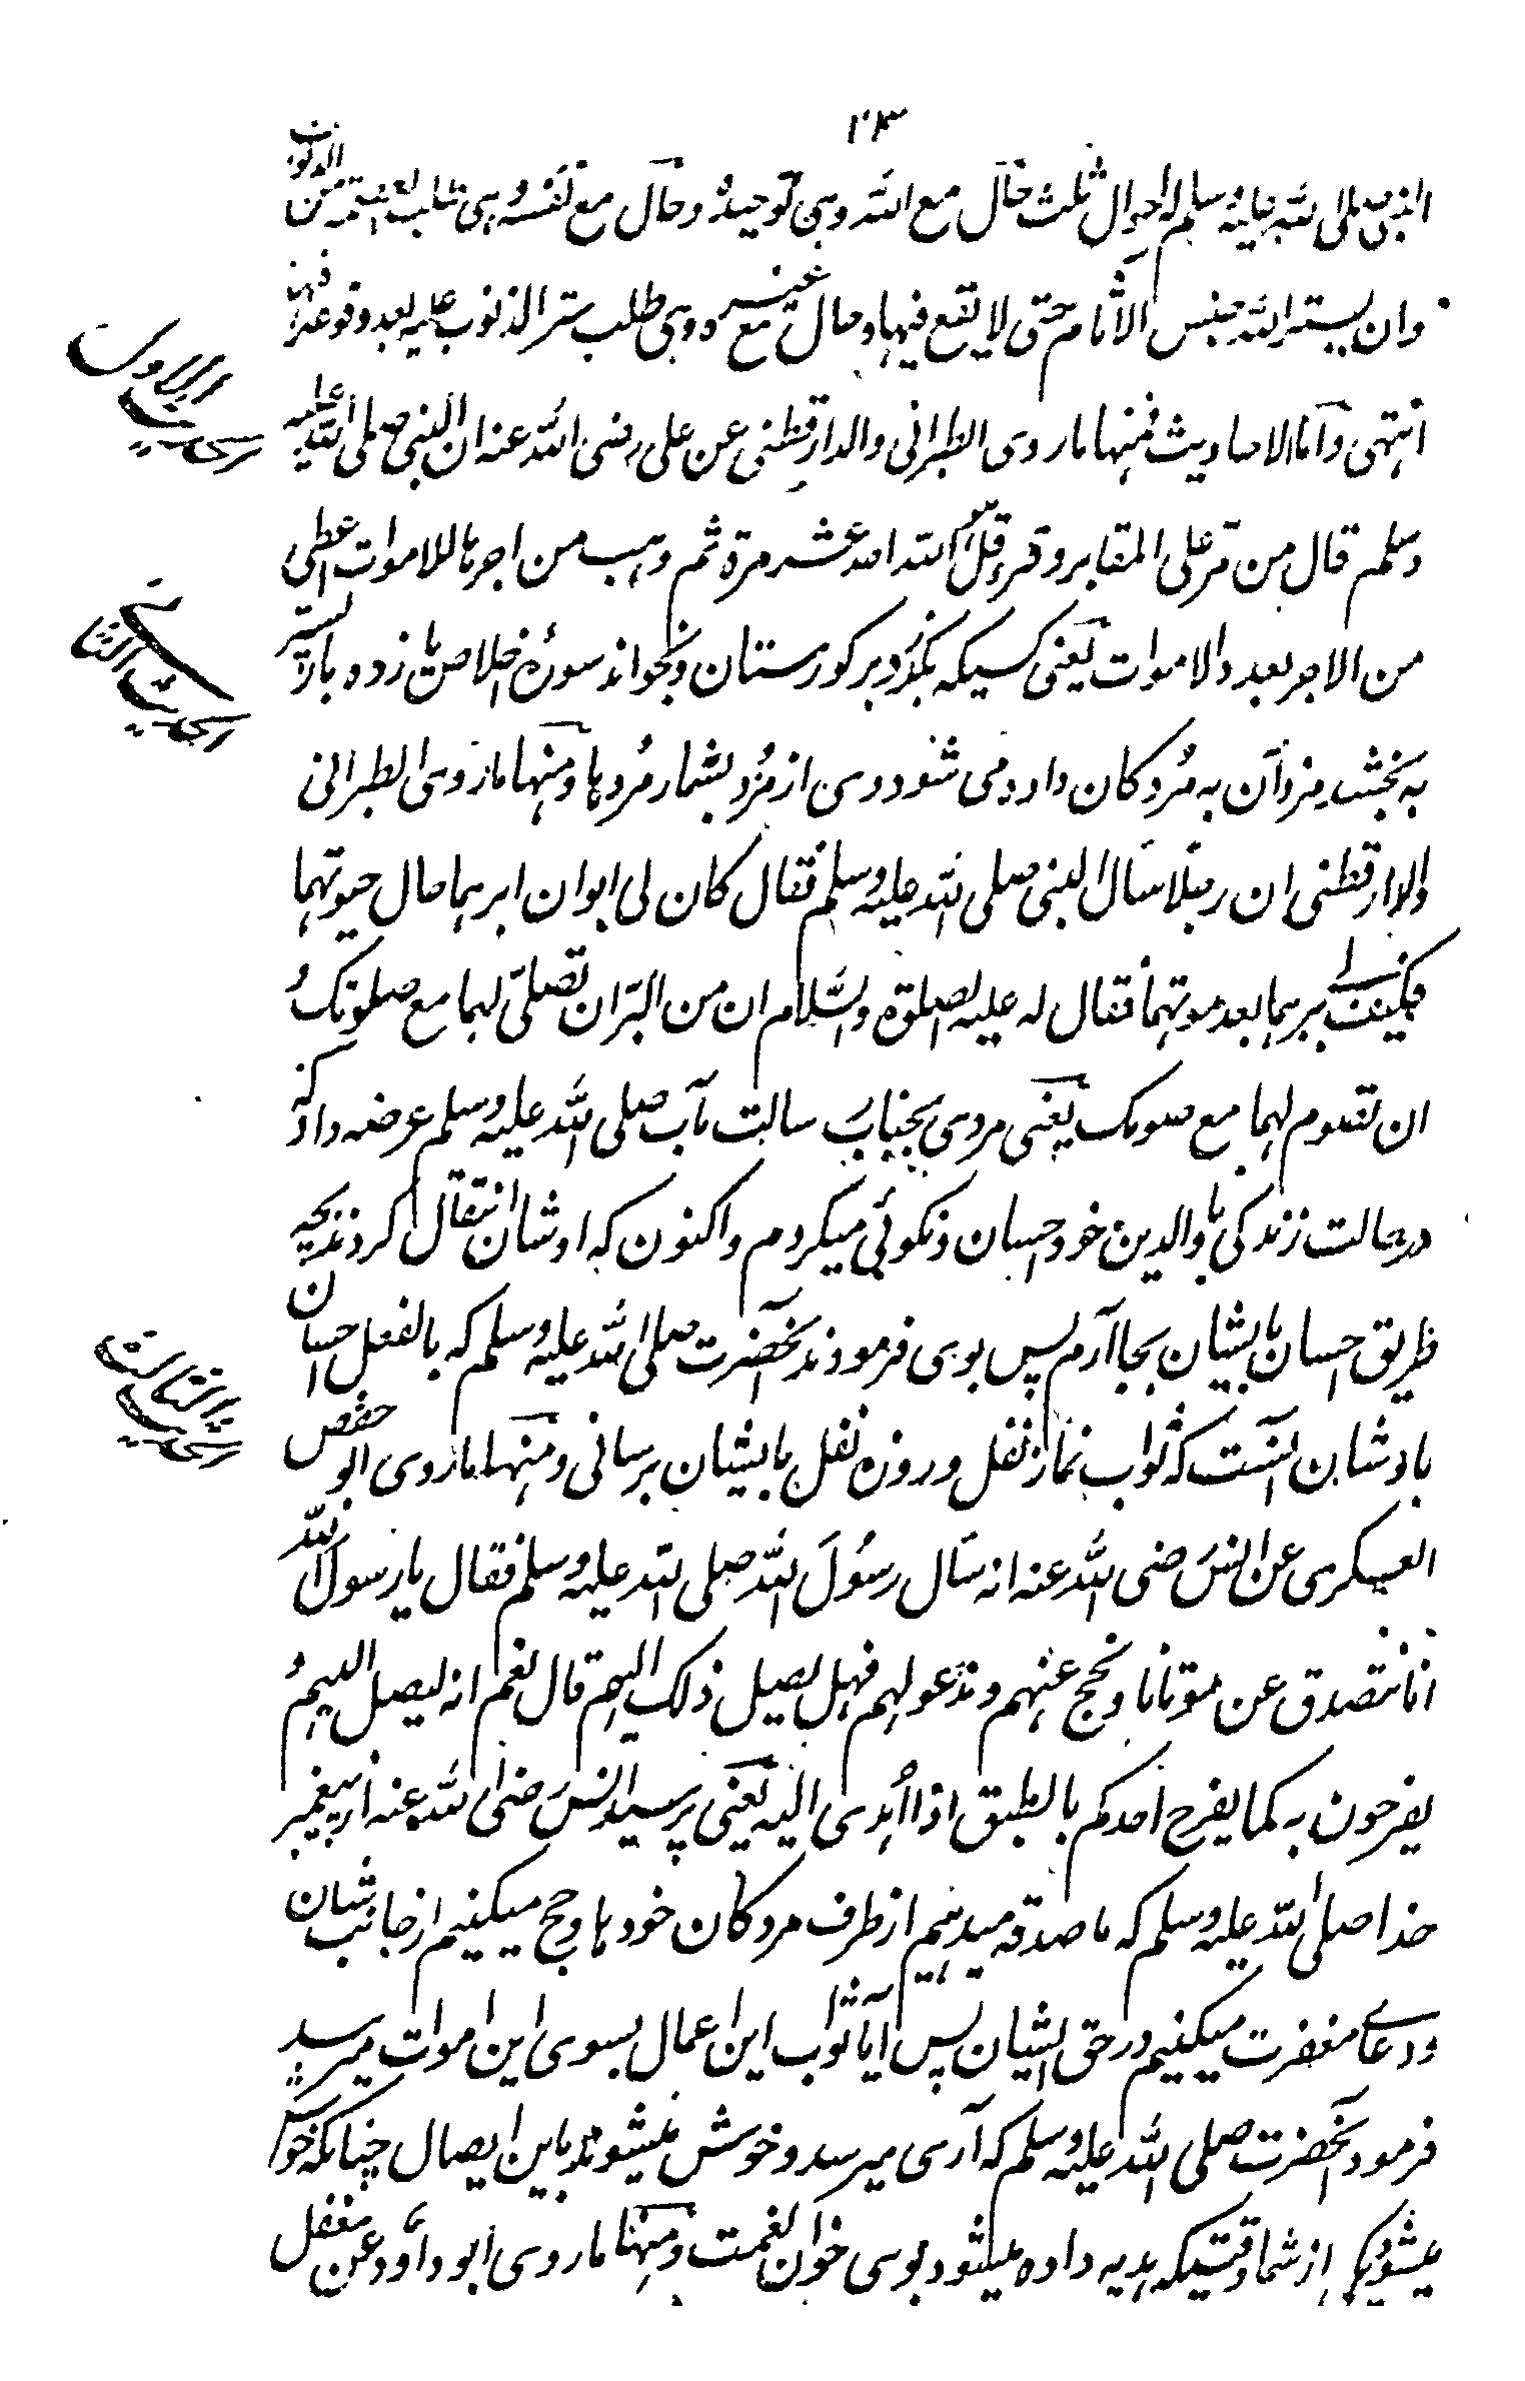 ٢٣
النبی صلی الله علیه وسلم له احوال ثلث حال مع الله وهی توحیده وحال مع نفسه وهی طلب العصمة من الذنوب
وان یستر الله جنس الاثام حتی لا تقع فیها وحال مع غیره وهی طلب ستر الذنوب علیه بعد وقوعه فیها
انتهی واما الاحادیث فمنها ما روی الطبرانی والدارقطنی عن علی رضی الله عنه ان النبی صلی الله علیه
الحدیث الاول
وسلم قال من مر علی المقابر وقرء قل هو الله احد عشر مرة ثم وهب من اجرها للاموات اعطی
من الاجر بعدد الاموات یعنی کسیکه بگذرد بر گورستان و بخواند سورهٔ اخلاص یازده بار پستر
الحدیث الثانی
به بخشد مزد آن به مردگان داده می شود وی از مُزد بشمار مُردها ومنها ما روی الطبرانی
والدارقطنی ان رجلا سَال النبی صلی الله علیه وسلم فقال کان لی ابوان ابرهما حال حیوتهما
فکیف لی ببرهما بعد موتهما فقال له علیه الصلوة والسّلام ان من البرّ ان تصلیّ لهما مع صلوتک و
ان تصوم لهما مع صومک یعنی مردی بجناب رسالت مآب صلی الله علیه وسلم عرضه داد که
در حالت زندگی با والدین خود احسان ونکوئی میکردم واکنون که اوشان انتقال کردند بچه
طریق احسان بایشان بجا آرم پس بوی فرمودند آنحضرت صلی الله علیه وسلم که بالفعل احسان
باوشان اینست که ثواب نماز نفل وروزه نفل بایشان برسانی ومنها ما روی ابو حفص
الحدیث الثالث
العسکری عن انس رضی الله عنه انه سَال رسُولَ الله صلی الله علیه وسلم فقال یا رسول الله
انا نتصدق عن موتانا ونحج عنهم وندعو لهم فهل یصل ذلک الیهم قال نعم انه لیصل الیهم و
یفرحون به کما یفرح احدکم بالطبق اذا اُهدی الیه یعنی پرسید انس رضی الله عنه از پیغمبر
خدا صلی الله علیه وسلم که ما صدقه میدهیم از طرف مردگان خودها وحج میکنیم از جانب شان
ودعای مغفرت میکنیم در حق ایشان پس آیا ثواب این اعمال بسوی این اموات میرسد
فرمود آنحضرت صلی الله علیه وسلم که آری میرسد وخوش میشوند باین ایصال چنانکه خوش
میشود یکی از شما وقتیکه هدیه داده میشود بوی خوان نعمت ومنها ما روی ابو داؤد عن معقل